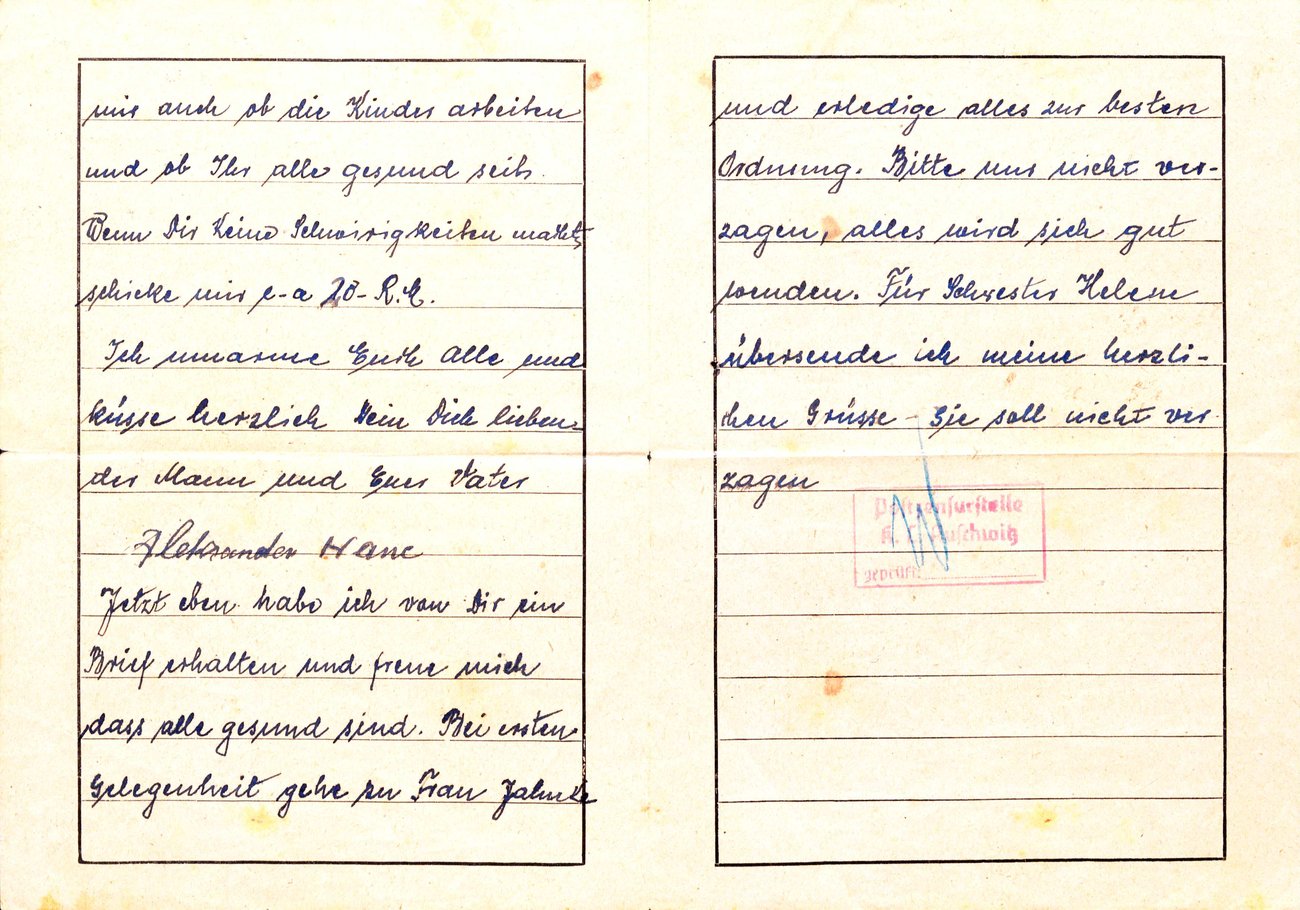 mir auch ob die Kinder arbeiten
und ob Ihr alle gesund seits.
Wenn Dir Keine Schwirigkeiten macht,
schicke mir c-a 20- R.M.
Ich umarme Euch Alle und
küsse herzlich Dein Dich lieben-
der Mann und Euer Vater
Aleksander
Jetzt eben habe ich von Dir ein
Brief erhalten und freue mich
dass alle gesund sind. Bei ersten
Gelegenheit gehe zu Frau Jahnke
und erledige alles zur besten
Ordnung. Bitte nur nicht ver-
zagen, alles wird sich gut
wenden. Für Schwester Helene
übersende ich meine herzli-
chen Grüsse - Sie soll nicht ver-
zagen
Postzensurstelle
K. L. Auschwitz
geprüft: